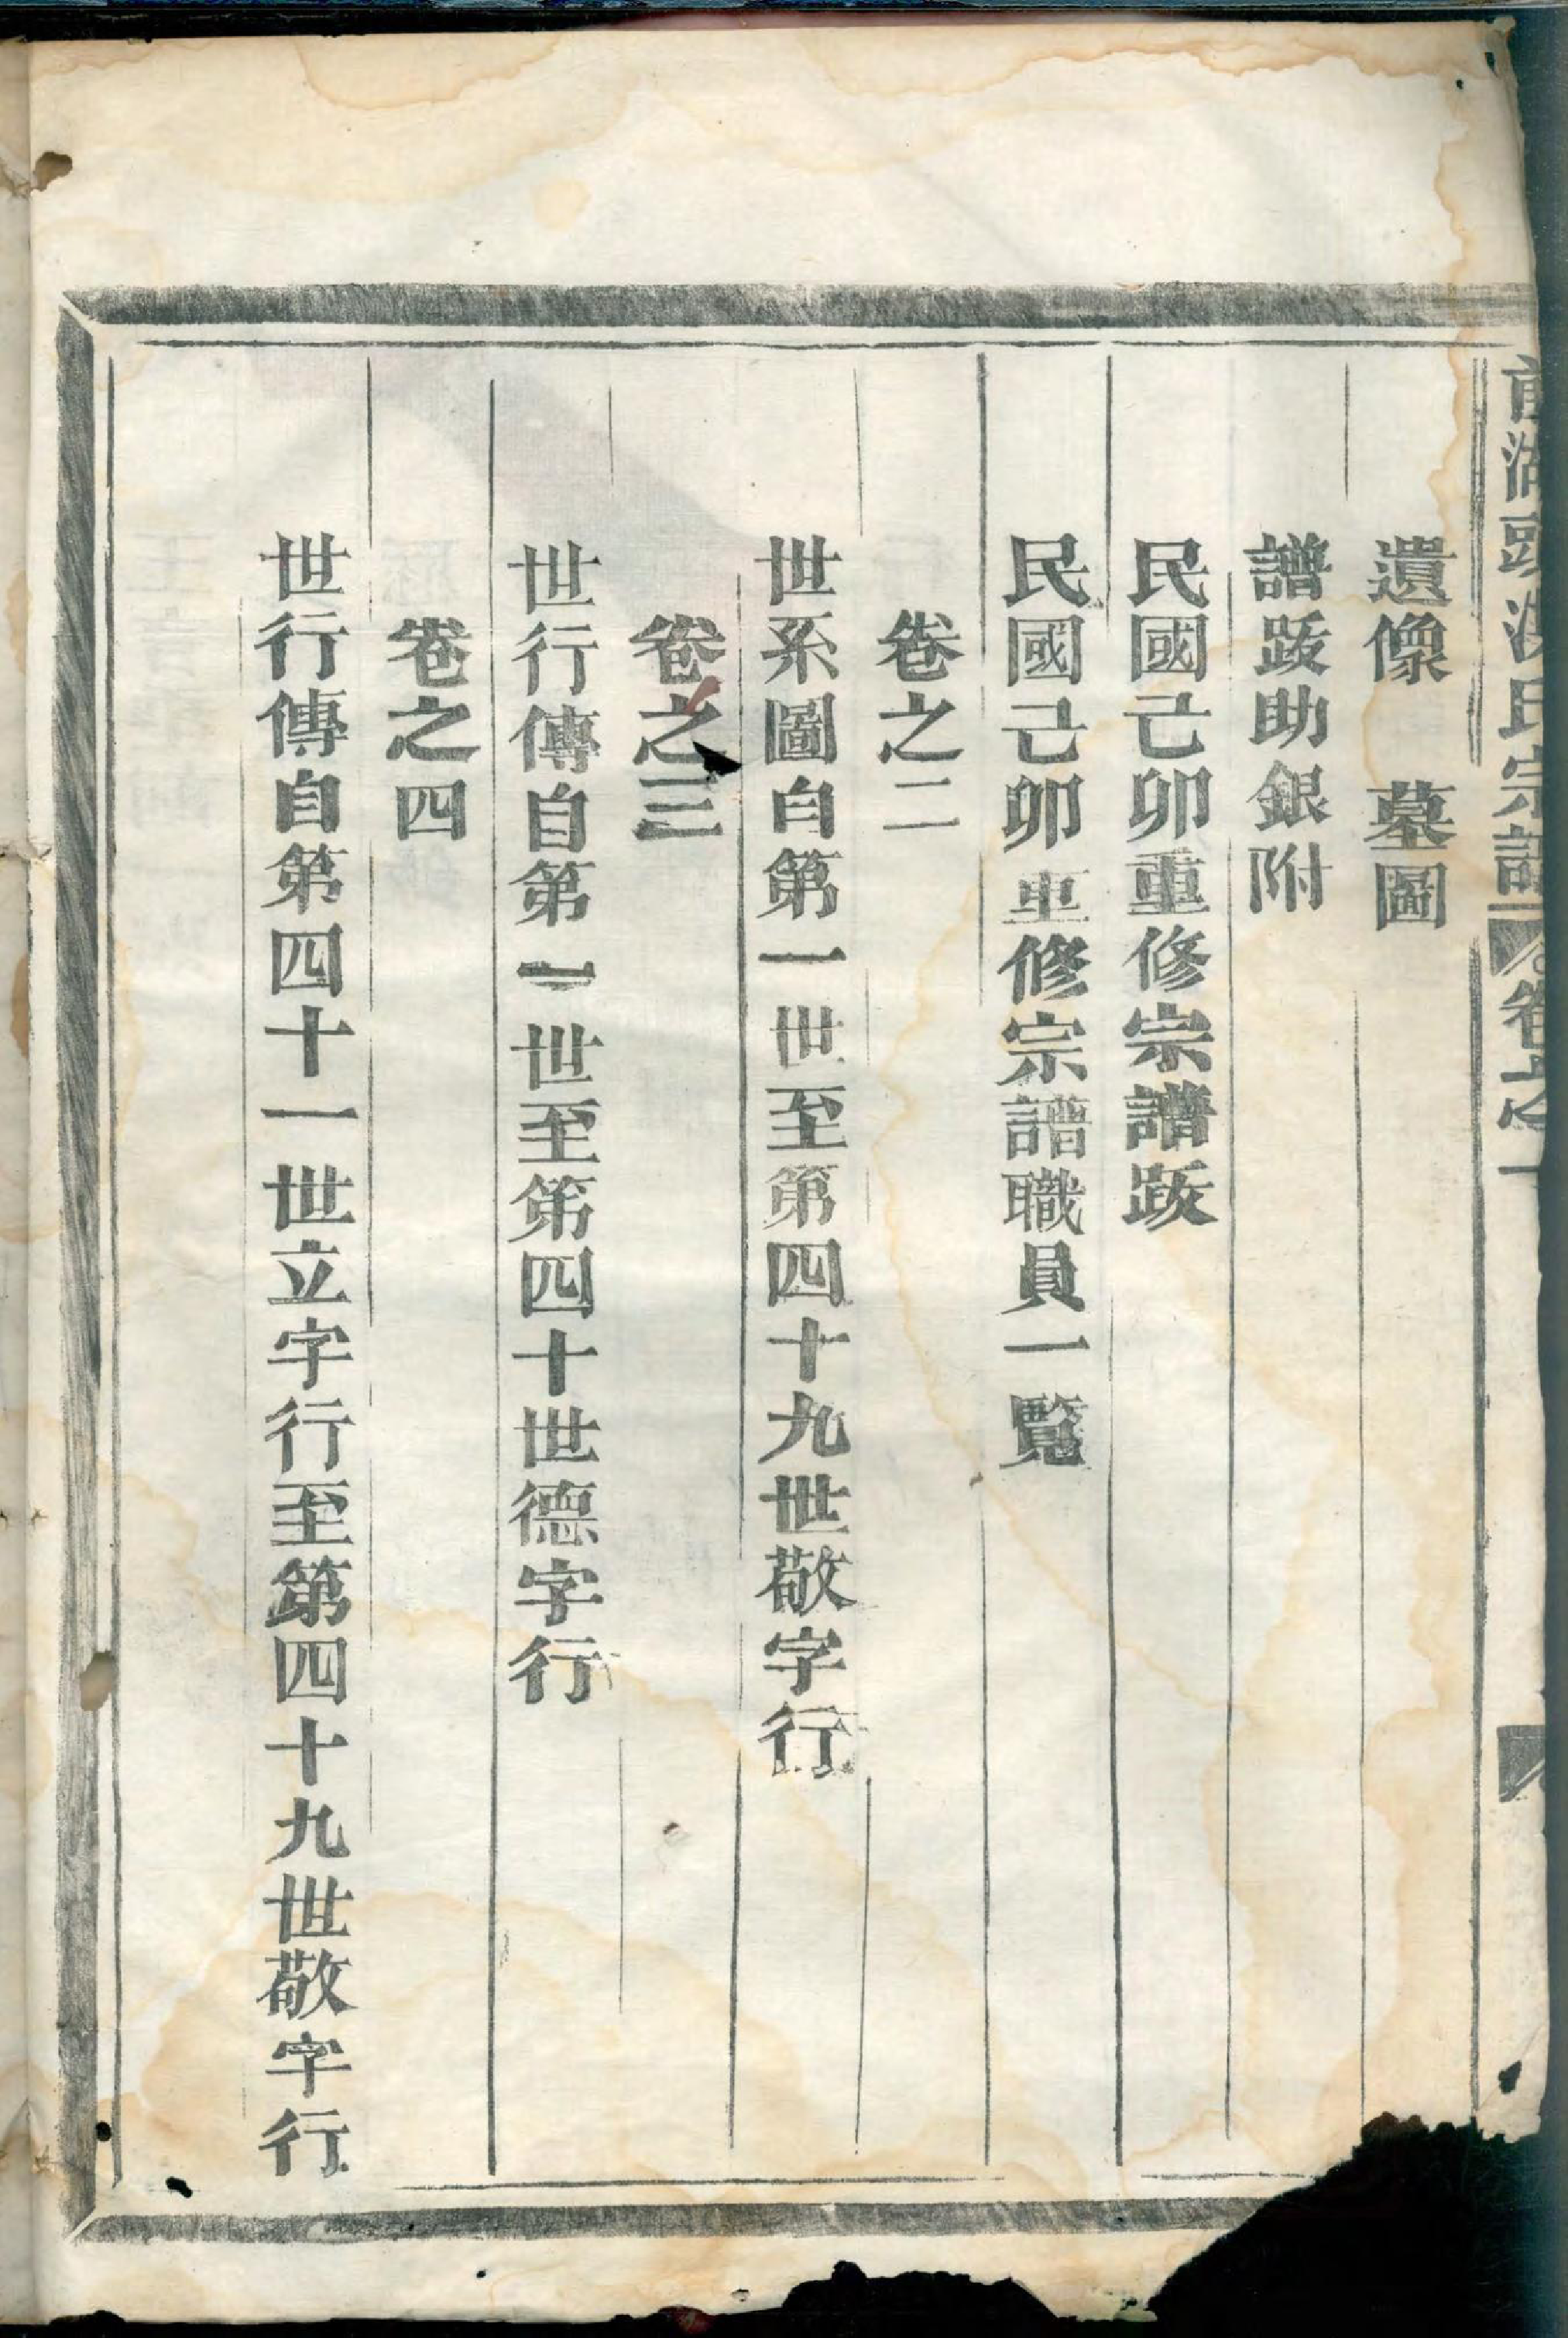 湖頭
氏宗譜
卷之一
遺像　墓圖
譜跋助銀附
民國己卯重修宗譜跋
民國己卯重修宗譜職員一覽
卷之二
世系圖自第一世至第四十九世敬字行
卷之三
世行傳自第一世至第四十世德字行
卷之四
世行傳自第四十一世立字行至第四十九世敬字行